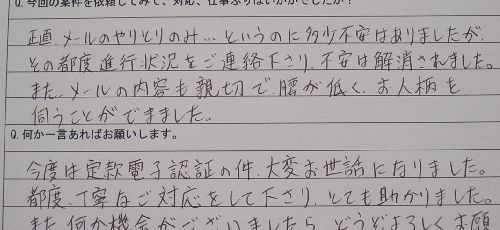 Q. 今回の案件を依頼してみて、対応、仕事ぶりはいかがでしたか?
正直、メールのやりとりのみ…というのに多少不安はありましたが、
その都度進行状況をご連絡下さり、不安は解消されました。
また、メールの内容も親切で、腰が低く、お人柄を
伺うことができました。
Q. 何か一言あればお願いします。
今度は定款電子認証の件、大変お世話になりました。
都度、丁寧なご対応をして下さり、とても助かりました。
また何か機会がございましたら、どうぞよろしくお願